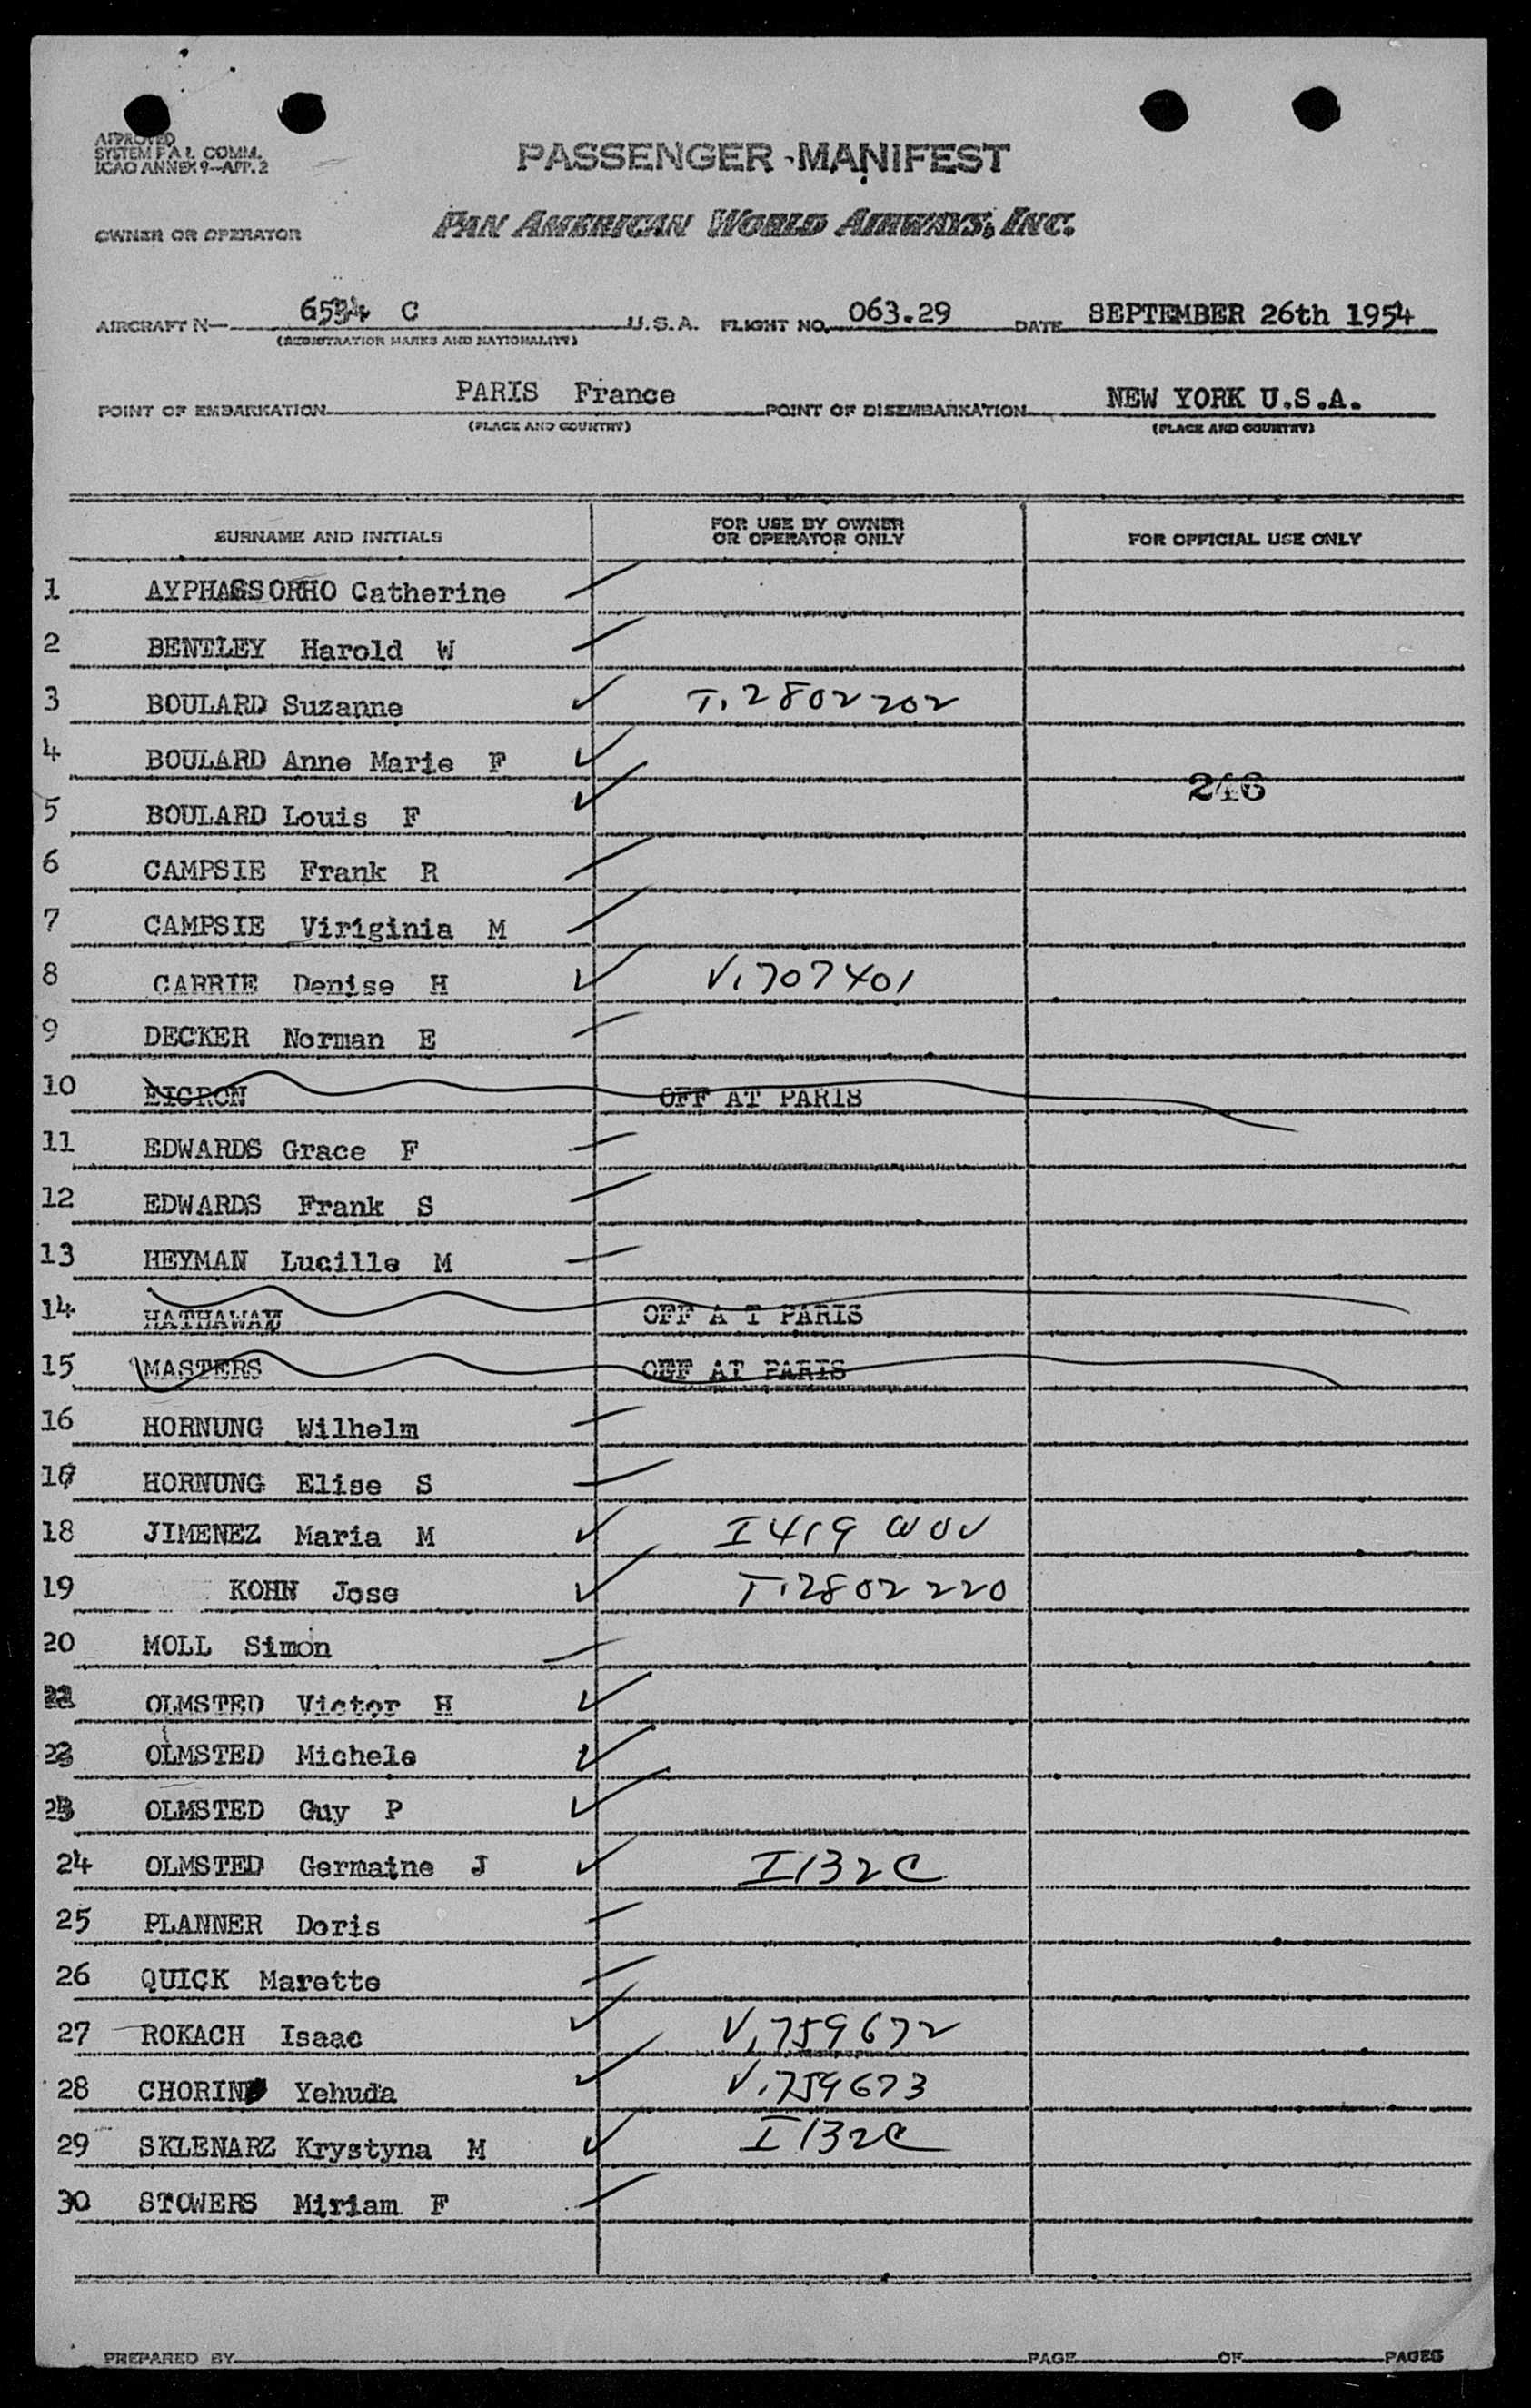 APPROVED
SYSTEM F.A.L. COMM.
ICAO ANNEX 9—APP. 2
PASSENGER MANIFEST
OWNER OR OPERATOR PAN AMERICAN WORLD AIRWAYS, INC.
AIRCRAFT N— 6534 C U.S.A. FLIGHT NO. 063.29 DATE SEPTEMBER 26th 1954
(REGISTRATION MARKS AND NATIONALITY)
POINT OF EMBARKATION PARIS France POINT OF DISEMBARKATION NEW YORK U.S.A.
(PLACE AND COUNTRY) (PLACE AND COUNTRY)
SURNAME AND INITIALS FOR USE BY OWNER OR OPERATOR ONLY FOR OFFICIAL USE ONLY
1 Catherine
2 BENTLEY Harold W
3 BOULARD Suzanne T.2802202
4 BOULARD Anne Marie F
246
5 BOULARD Louis F
6 CAMPSIE Frank R
7 CAMPSIE Viriginia M
8 CARRIE Denise H V.707401
9 DECKER Norman E
10 EIGRON OFF AT PARIS
11 EDWARDS Grace F
12 EDWARDS Frank S
13 HEYMAN Lucille M
14 HATHAWAY OFF A T PARIS
15 MASTERS OFF AT PARIS
16 HORNUNG Wilhelm
17 HORNUNG Elise S
18 JIMENEZ Maria M I419
19 KOHN Jose T.2802220
20 MOLL Simon
21 OLMSTED Victor H
22 OLMSTED Michele
23 OLMSTED Guy P
24 OLMSTED Germaine J I132C
25 PLANNER Doris
26 QUICK Marette
27 ROKACH Isaac V.759672
28 CHORIN Yehuda V.759673
29 SKLENARZ Krystyna M I132C
30 STOWERS Miriam F
PREPARED BY PAGE OF PAGES